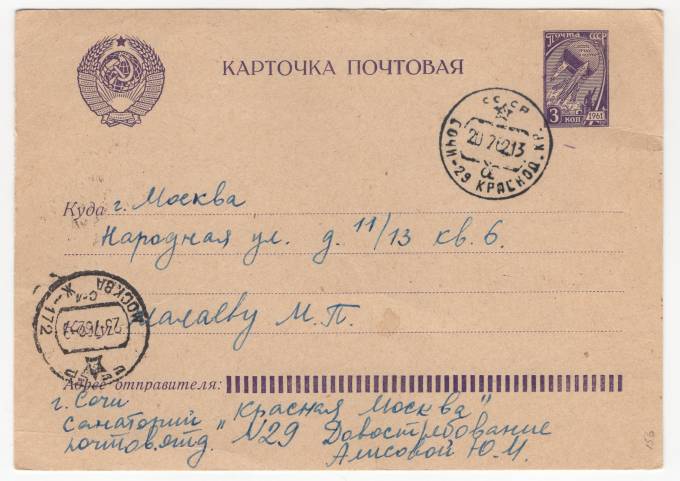 КАРТОЧКА ПОЧТОВАЯ
ПОЧТА СССР
3 КОП 1961
СССР
20 7 62 13
СОЧИ-29 КРАСНОД. КР.
Куда г. Москва
Народная ул. д. 11/13 кв. 6.
М. П.
МОСКВА Ж-172
Адрес отправителя:
г. Сочи
санаторий „Красная Москва"
почтов. отд. N29 Довостребование
Алисовой Ю. М.
156